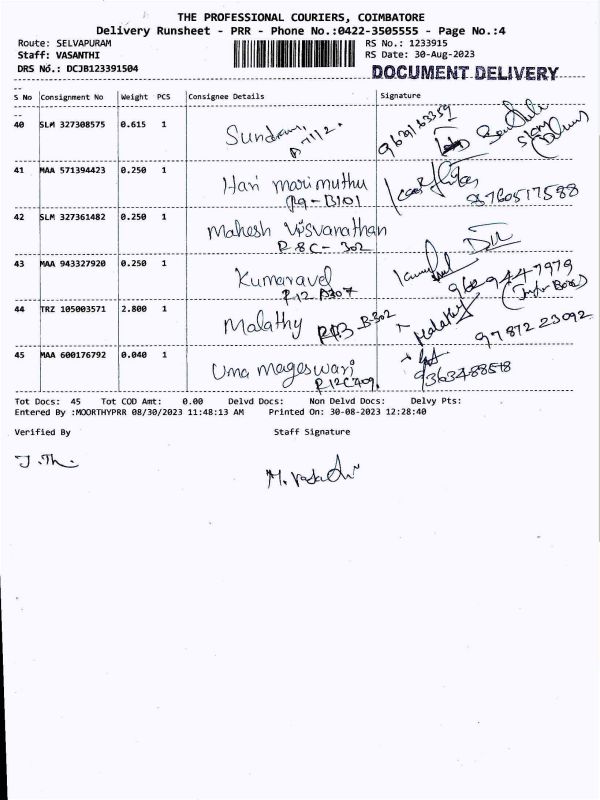 THE PROFESSIONAL COURIERS, COIMBATORE
Delivery Runsheet - PRR - Phone No.:0422-3505555 - Page No.:4
Route: SELVAPURAM RS No.: 1233915
Staff: VASANTHI RS Date: 30-Aug-2023
DRS No.: DCJB123391504 DOCUMENT DELIVERY
S No Consignment No Weight PCS Consignee Details Signature
40 SLM 327308575 0.615 1 Sundram,
41 MAA 571394423 0.250 1 Hari marimuthu 8760517588
R9-B101
42 SLM 327361482 0.250 1 Mahesh Visvanathan
R8C-302
43 MAA 943327920 0.250 1 Kumaravel
R12 A307
44 TRZ 105003571 2.800 1 Malathy B-302 Malathy 97872 23092
45 MAA 600176792 0.040 1 Uma mageswari
R12C409,
Tot Docs: 45 Tot COD Amt: 0.00 Delvd Docs: Non Delvd Docs: Delvy Pts:
Entered By :MOORTHYPRR 08/30/2023 11:48:13 AM Printed On: 30-08-2023 12:28:40
Verified By Staff Signature